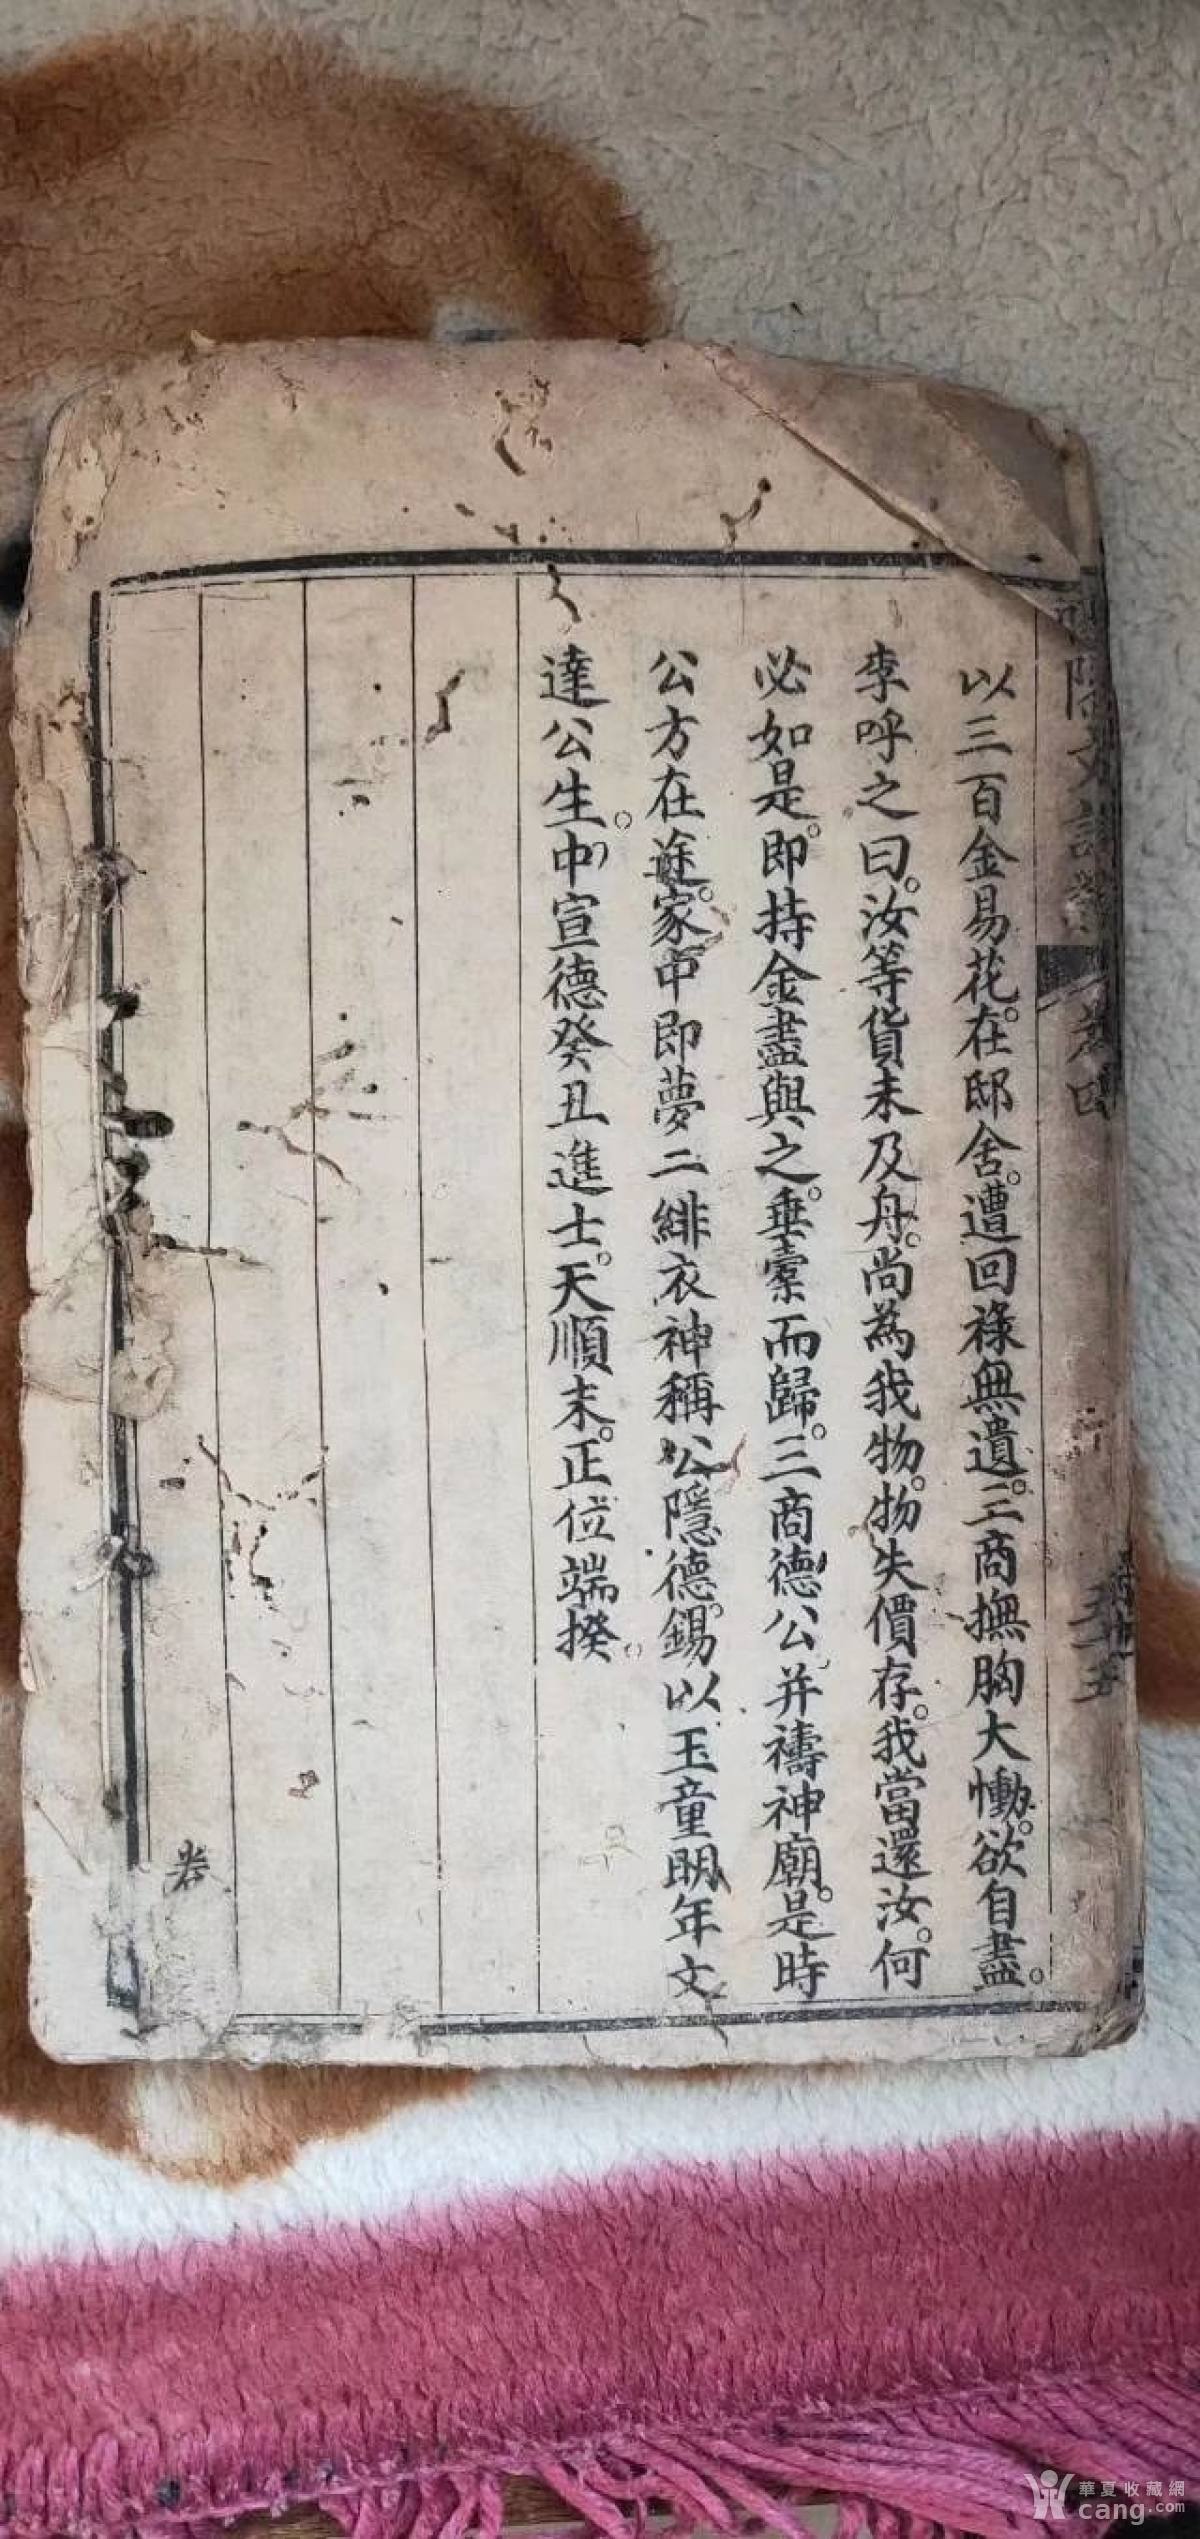 以三百金易花。在邸舍。遭回祿無遺。三商撫胸大慟。欲自盡。
李呼之曰。汝等貨未及舟。尚為我物。物失價存。我當還汝。何
必如是。即持金盡與之。垂橐而歸。三商德公并禱神廟。是時
公方在途。家中即夢二緋衣神稱公隱德。錫以玉童明年文
達公生。中宣德癸丑進士。天順末。正位端揆。
卷
陰文
卷四
華夏收藏網
cang.com